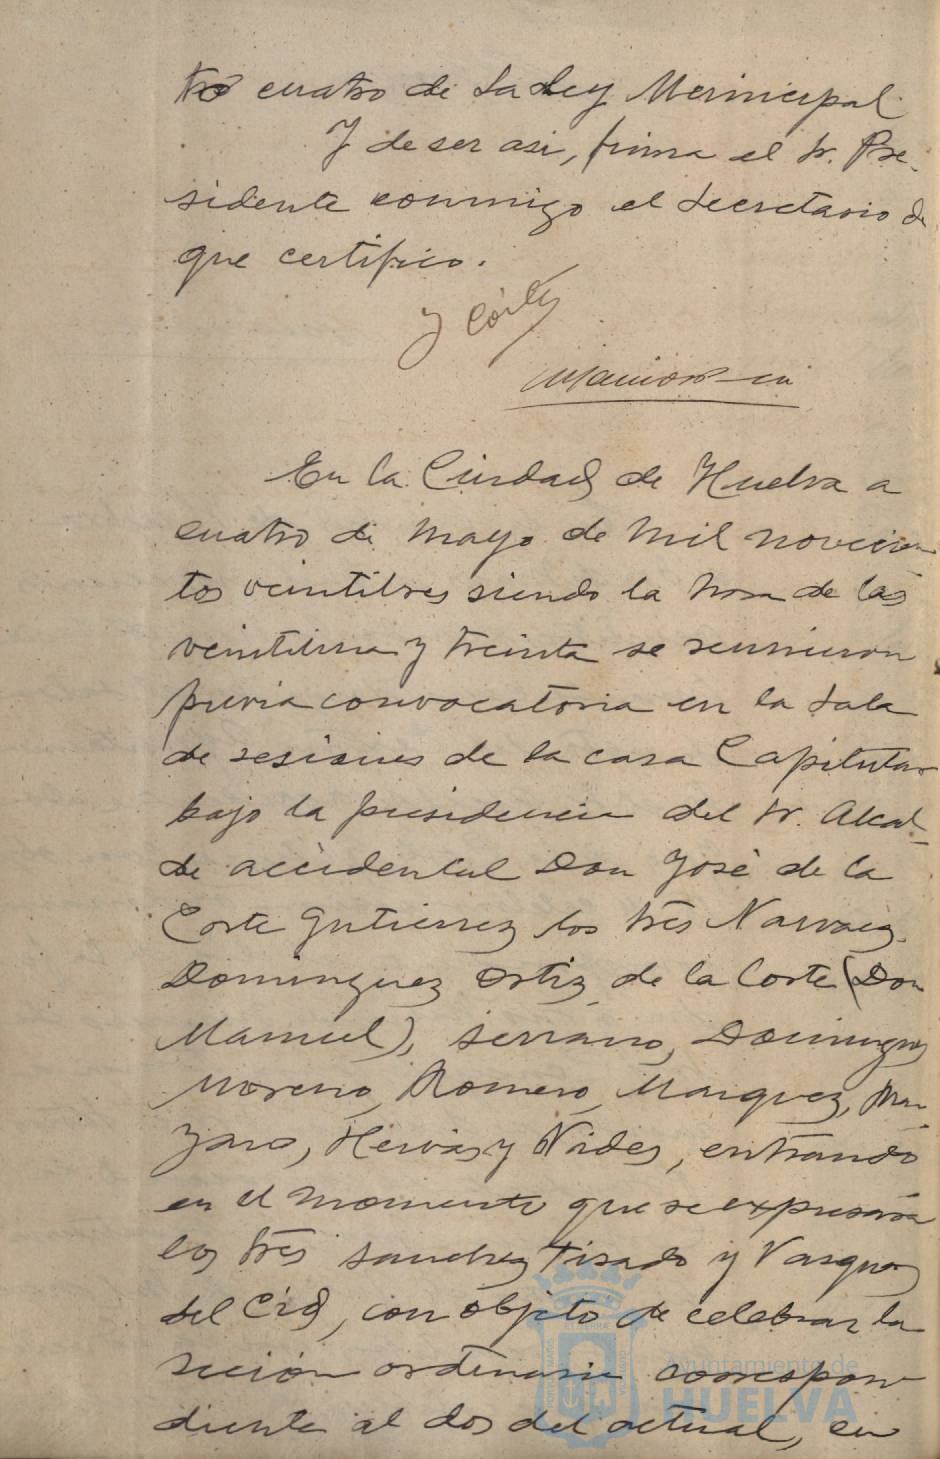 tro cuatro de la Ley Municipal
Y de ser asi, firma el Sr. Pre-
sidente conmigo el Secretario de
que certifico.
y Corte
En la Ciudad de Huelva a
cuatro de Mayo de Mil novecien
tos veintitres siendo la hora de las
veintiuna y treinta se reunieron
previa convocatoria en la Sala
de sesiones de la casa Capitular
bajo la presidencia del Sr. Alcal-
de accidental Don José de la
Corte Gutierrez los Sres Narvaez
Dominguez Ortiz, de la Corte (Don
Manuel), Serrano, Dominguez
Moreno, Romero, Marquez, Man-
zano, Hervás y Vides, entrando
en el momento que se expresara
los Sres Sanchez Tirado y Vazquez
del Cid, con objeto de celebrar la
sesión ordinaria correspon
diente al dos del actual, en
Ayuntamiento de
HUELVA